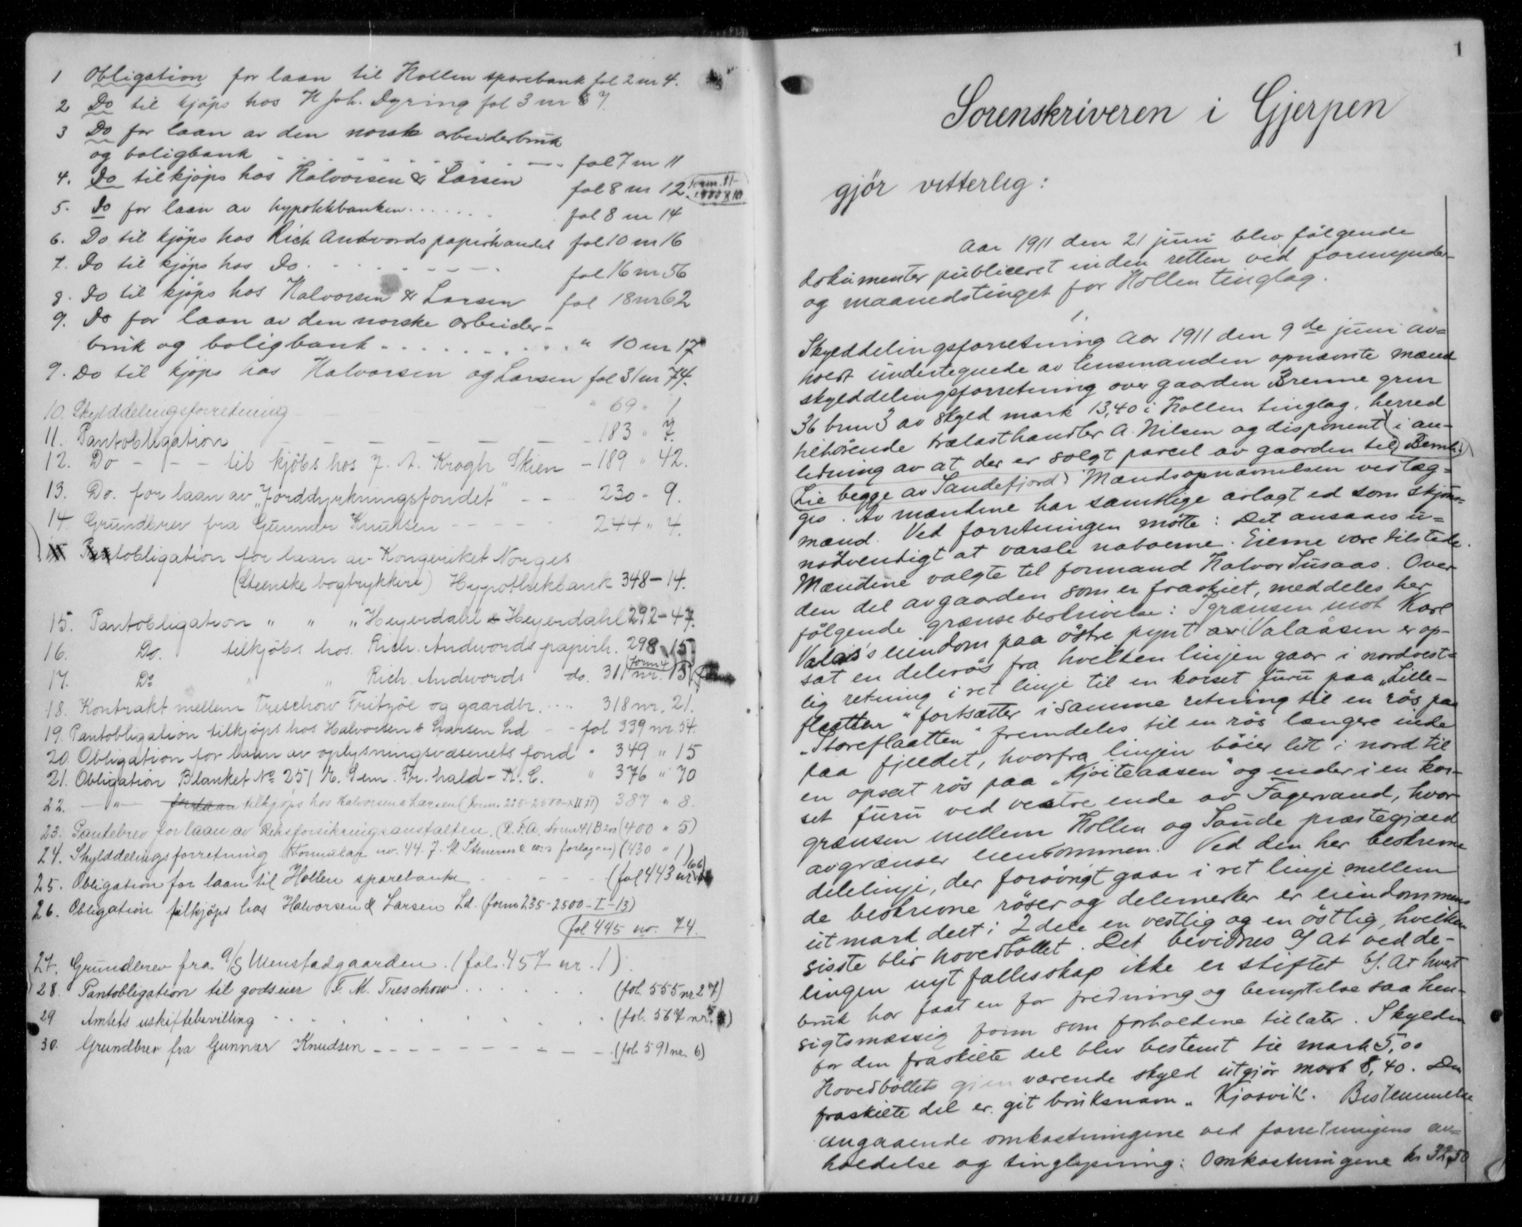 1 Obligation for laan til Hollen sparebank fol 2 nr 4.
2 Do til kjøps hos H Joh. Dyring fol 3 nr 7.
3 Do for laan av den norsk arbeiderbruk
og boligbank . . . . . . . . fol 7 nr 11
4. Do til kjøps hos Halvorsen & Larsen fol 8 nr 12
5. Do for laan av hypothekbanken . . . . . . fol 8 nr 14
6. Do til kjøps hos Rich Andvords papirhandel fol 10 nr 16
7. Do til kjøps hos Do. . . . . . . . fol 16 nr 56
8. Do til kjøps hos Halvorsen & Larsen fol 18 nr 62
9. Do for laan av den norske arbeider-
bruk og boligbank - . . . . . . . . . " 10 nr 17
9. Do til kjøps hos Halvorsen og Larsen fol 31 nr 74.
10. Skylddelingsforretning - - " 69 " 1
11. Pantobligation - - - - - - 183 " 7.
12. Do - - - til kjøbs hos J. A. Krogh Skien - 189 " 42.
13. Do. for laan av "Jorddyrkningsfondet" - - 230 - 9.
14. Grundbrev fra Gunnar Knudsen - - - - - 244 " 4.
Pantobligation for laan av Kongeriket Norges
(Steenske bogtrykkeri) Hypothekbank 348 - 14.
15. Pantobligation " " " Heyerdahl & Heyerdahl 292 - 47.
16. Do. til kjøbs hos Rich. Andvords papirh. 298 " 15
17. Do " " Rich. Andvords do. 311 nr. 15
18. Kontrakt mellem Treschow Fritzöe og gaardbr. . . . 318 nr. 21.
19. Pantobligation til kjøps hos Halvorsen & Larsen Ld - - fol 339 nr 54.
20 Obligation for laan av oplysningsvæsenets fond " 349 " 15
21. Obligation Blanket No 251 " 376 " 70
22. - " - for laan til kjøps hos Halvorsen & Larsen (form 235-2500-XII 11) 387 " 8.
23. Pantebrev for laan av Riksforsikringsanstalten. (R.F.A. form 41 B 200) (400 " 5)
24. Skylddelingsforretning Formular nr. 44. forlag (430 " 1)
25. Obligation for laan til Hollen sparebank - - - - (fol 443 nr 66)
26. Obligation til kjøps hos Halvorsen & Larsen Ld. (form 235-2500-I-13)
fol 445 nr. 74.
27. Grundbrev fra A/S Menstadgaarden. (fol. 457 nr. 1)
28. Pantobligation til godseier F. M. Treschow . . . . . . (fol. 555 nr 27)
29 Amtets uskiftebevilling . . . . . . . . (fol. 567 nr.
30. Grundbrev fra Gunnar Knudsen - - - - - - - (fol. 591 nr. 6)
1
Sorenskriveren i Gjerpen
gjør vitterlig:
Aar 1911 den 21 juni blev følgende
dokumenter publiceret inden retten ved formynder-
og maanedstinget for Hollen tinglag.
1.
Skylddelingsforretning Aar 1911 den 9de juni av=
holdt undertegnede av lensmanden opnævnte mænd
skylddelingsforretning over gaarden Brenne grnr
36 brnr 3 av skyld mark 13,40 i Hollen tinglag, herred
tilhørende trælasthandler A. Nilsen og disponent i an-
ledning av at der er solgt parcel av gaarden til Bernt
Lie begge av Sandefjord Mandsopnævnelsen vedlæg-
ges. Av mændene har samtlige avlagt ed som skjøns-
mænd. Ved forretningen møtte: Det ansaaes u=
nødvendigt at varsle naboerne. Eierne var tilstede.
Mændene valgte til formand Halvor Susaas. Over
den del av gaarden som er fraskilt, meddeles her
følgende grænsebeskrivelse: I grænsen mot Karl
Valaas's eiendom paa østre pynt av Valaåsen er op-
sat en delerøs fra hvilken linjen gaar i nordvest-
lig retning i ret linje til en korset furu paa "Lille-
flaatten" fortsætter i samme retning til en røs paa
"Storeflaatten" fremdeles til en røs længere inde
paa fjeldet, hvorfra linjen bøier litt i nord til
en opsat røs paa "Kjøiteaasen" og ender i en kor-
set furu ved vestre ende av Fagervand, hvor
grænsen mellem Hollen og Saude præstegjæld
avgrænser eiendommen. Ved den her beskrevne
delelinje, der forøvrigt gaar i ret linje mellem
de beskrevne røser og delemerker er eiendommens
utmark delt i 2 dele en vestlig og en østlig, hvilken
sidste blir hovedbøllet. Det bevidnes a/ at ved de-
lingen nyt fællesskap ikke er stiftet b/. At hvert
bruk har faat en for fredning og benyttelse saa hen-
sigtsmæssig form som forholdene tillater. Skylden
for den fraskilte del blev bestemt til mark 5,00
Hovedbøllets gjenværende skyld utgjør mark 8,40. Den
fraskilte del er git bruksnavn "Kjosvik. Bestemmelse
angaaende omkostningene ved forretningens av=
holdelse og tinglysning: Omkostningene kr 32,50